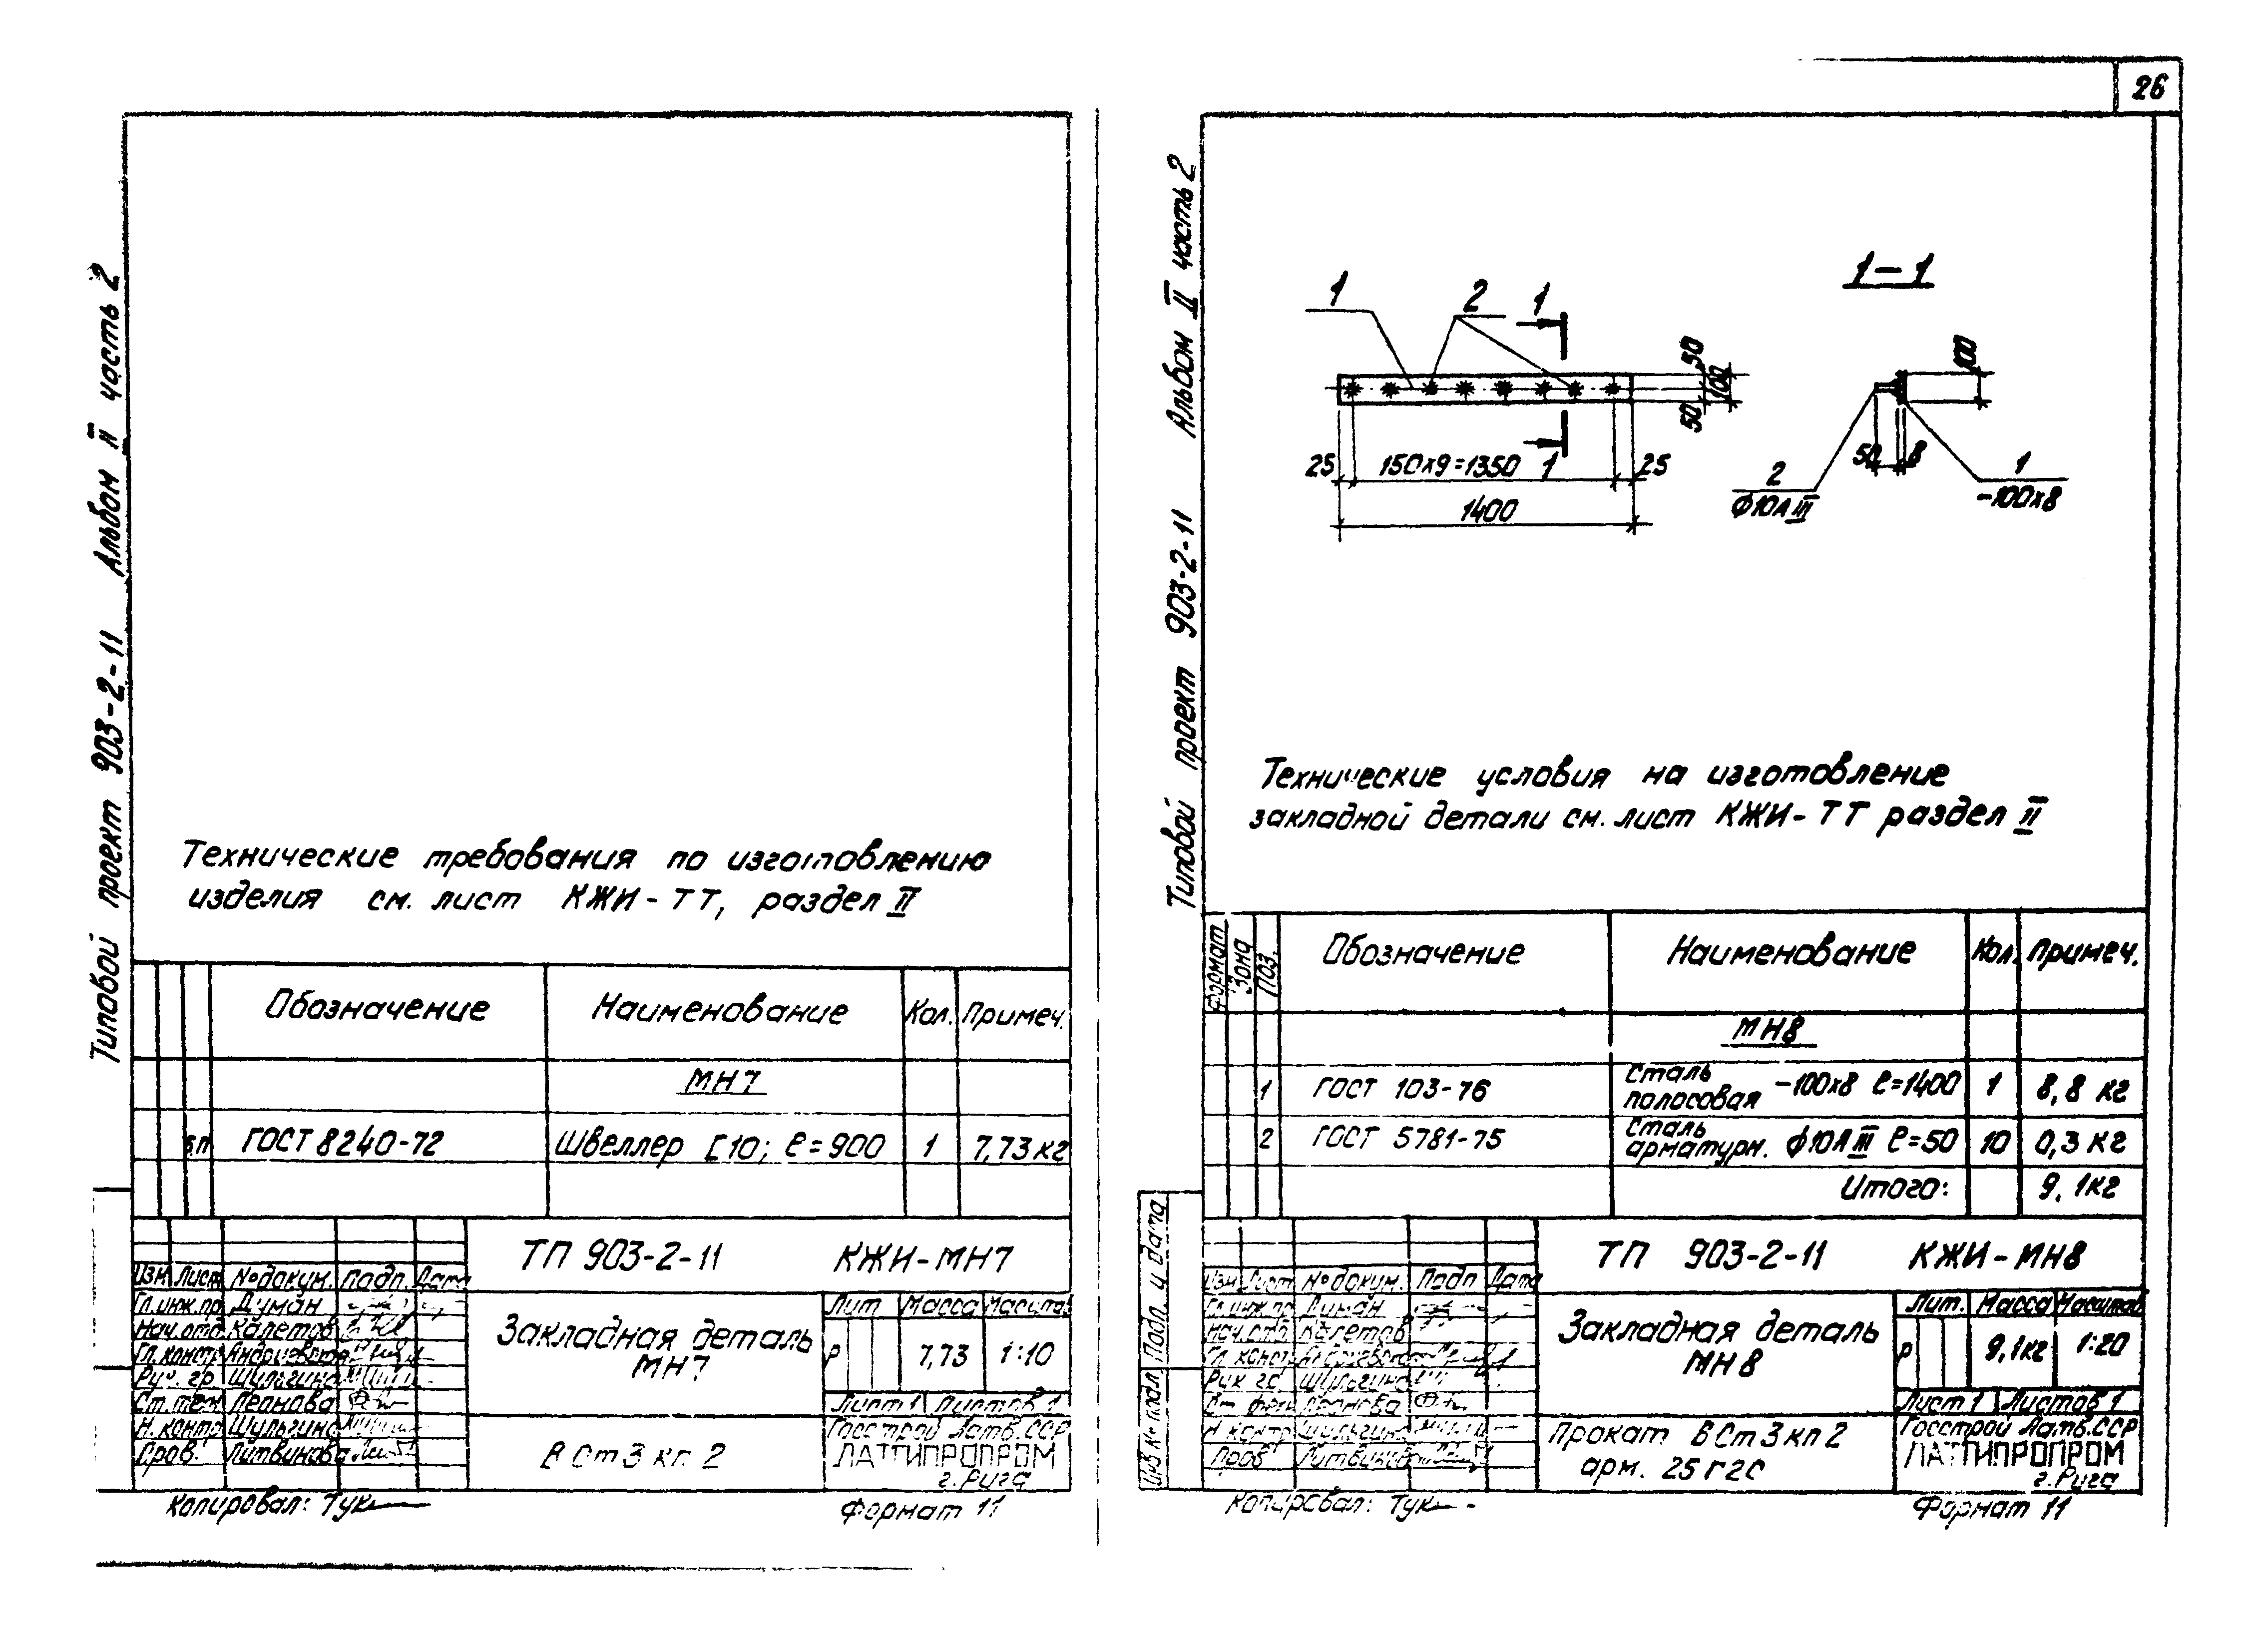 26
Типовой проект 903-2-11 Альбом II часть 2
Технические требования по изготовлению
изделия см. лист КЖИ-ТТ, раздел II
Обозначение Наименование Кол. Примеч.
МН7
БП ГОСТ 8240-72 Швеллер [10; ℓ=900 1 7,73кг
ТП 903-2-11 КЖИ-МН7
Изм Лист №докум. Подп. Дата
Гл.инж.пр Думан
Нач.отд. Калетов
Гл.констр
Рук. гр. Шульгина
Ст.тех Леонова
Н.контр Шульгина
Пров. Литвинова
Закладная деталь
МН7
Лит Масса Масштаб
Р 7,73 1:10
Лист 1 Листов 1
В Ст 3 кп 2
Госстрой Латв.ССР
ЛАТГИПРОПРОМ
г.Рига
Копировал: Тук
Формат 11
Типовой проект 903-2-11 Альбом II часть 2
1 2 1
1-1
50
100
50
25 150х9=1350 1 25
1400
100
50 8
2
ф10АIII
1
-100х8
Технические условия на изготовление
закладной детали см. лист КЖИ-ТТ раздел II
Формат Зона Поз. Обозначение Наименование Кол. Примеч.
МН8
1 ГОСТ 103-76 Сталь полосовая -100х8 ℓ=1400 1 8,8 кг
2 ГОСТ 5781-75 Сталь арматурн. ф10АIII ℓ=50 10 0,3 кг
Итого: 9,1кг
ТП 903-2-11 КЖИ-МН8
Изм Лист №докум. Подп Дата
Гл.инж.пр Думан
Нач.отд Калетов
Гл. констр
Рук. гр. Шульгина
Ст. Леонова
Н.контр Шульгина
Пров. Литвинова
Закладная деталь
МН8
Лит. Масса Масштаб
Р 9,1кг 1:20
Лист 1 Листов 1
Прокат ВСт3кп2
арм. 25Г2С
Госстрой Латв.ССР
ЛАТГИПРОПРОМ
г.Рига
Инв № подл Подп. и дата
Копировал: Тук
Формат 11